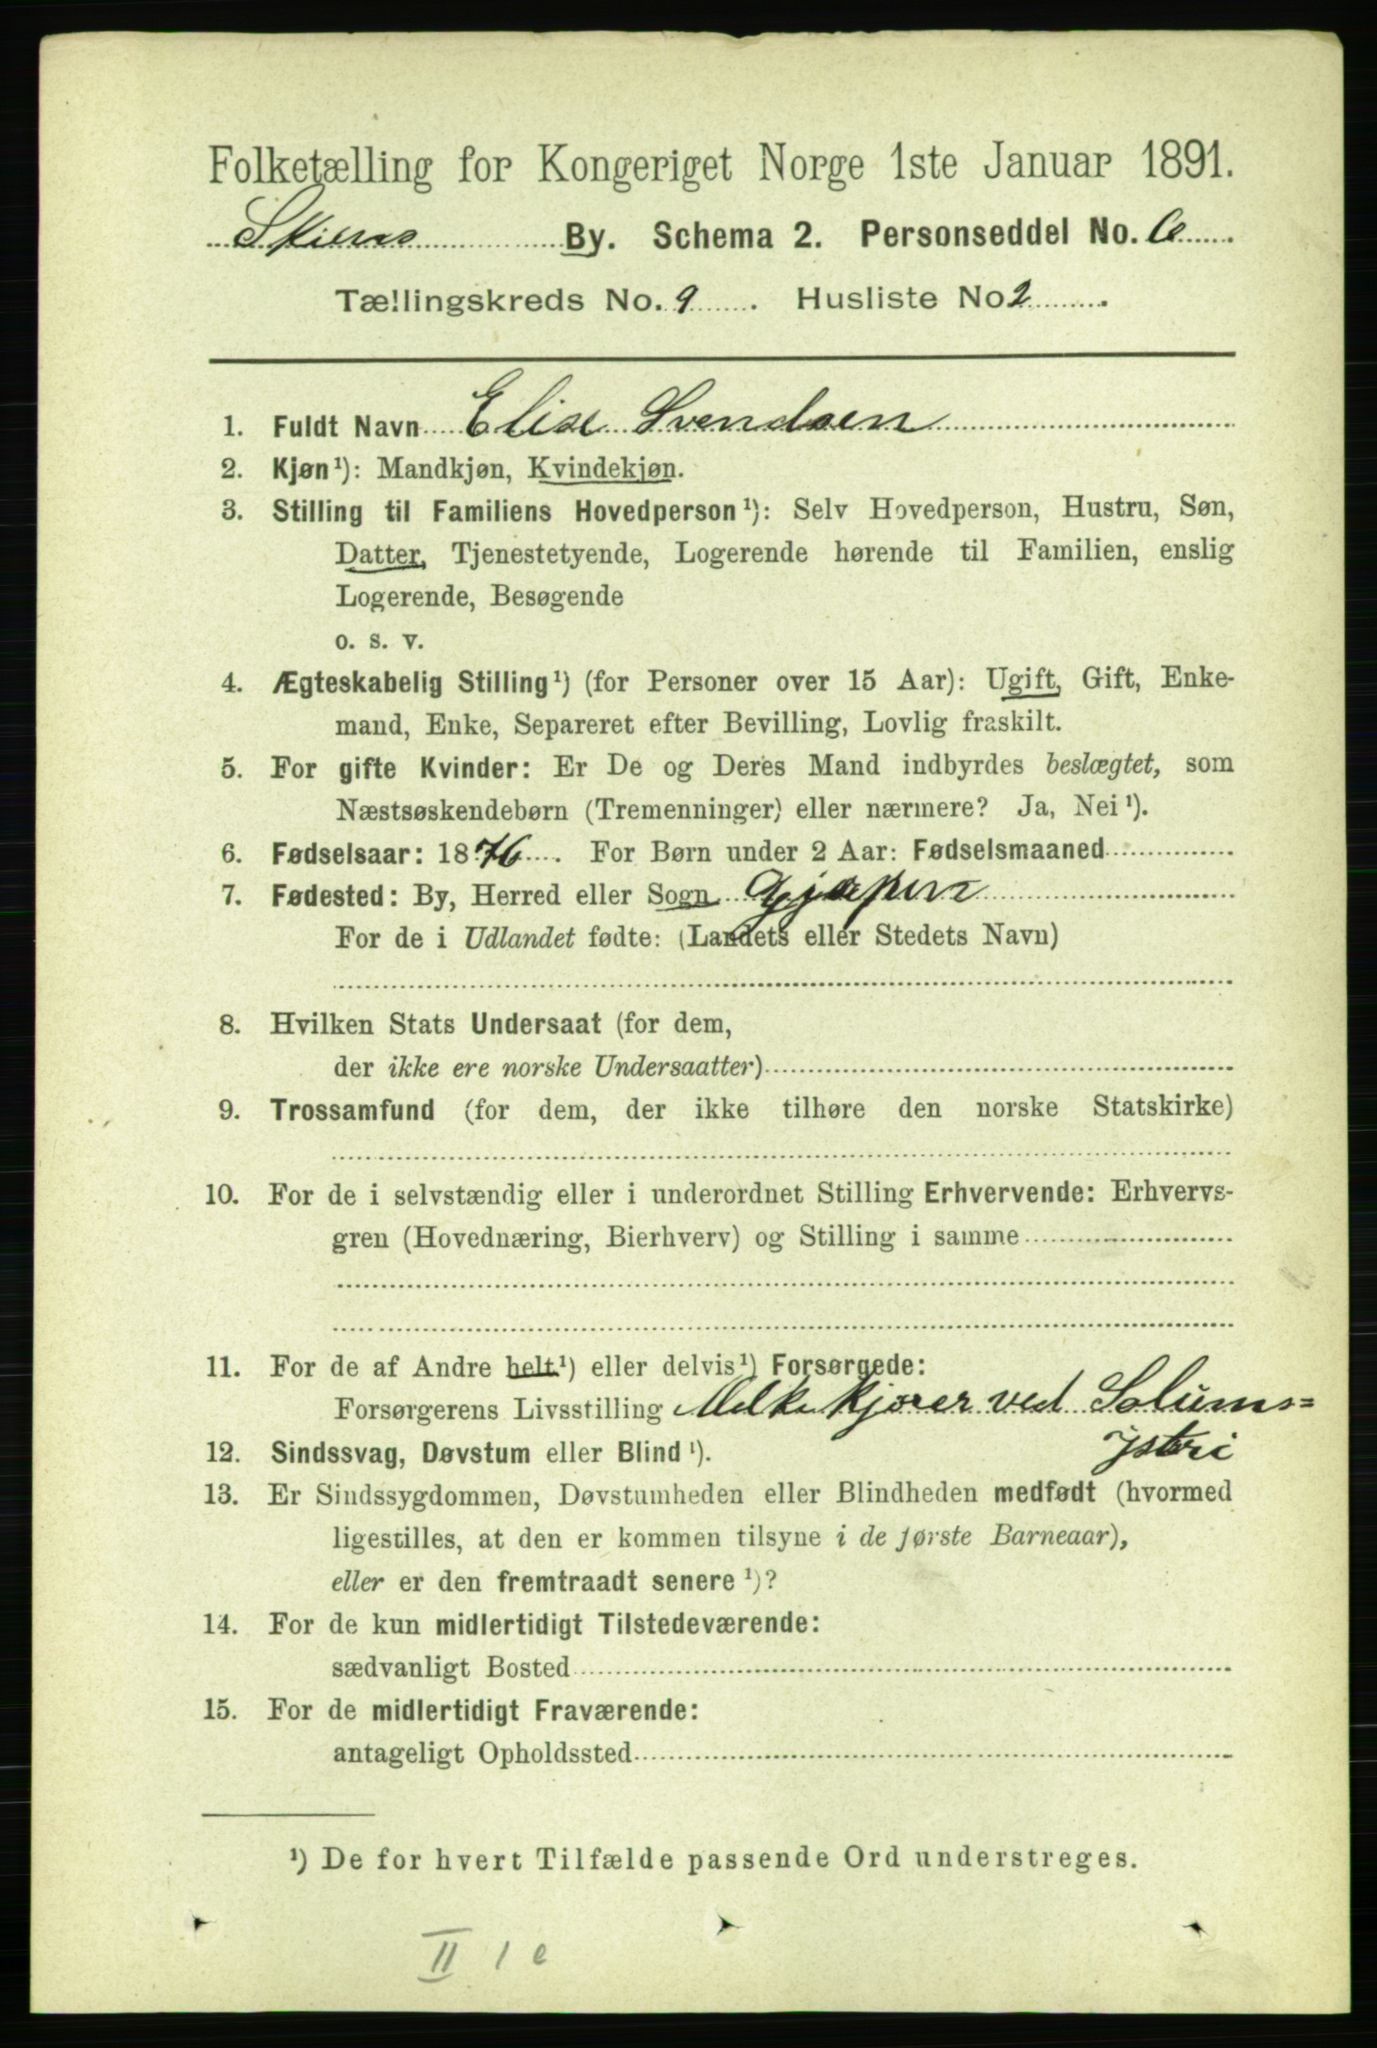 Folketælling for Kongeriget Norge 1ste Januar 1891.
Skiens By. Schema 2. Personseddel No. 6
Tællingskreds No. 9. Husliste No 2.
1. Fuldt Navn Elise Svendsen
2. Kjøn¹): Mandkjøn, Kvindekjøn.
3. Stilling til Familiens Hovedperson¹): Selv Hovedperson, Hustru, Søn,
Datter, Tjenestetyende, Logerende hørende til Familien, enslig
Logerende, Besøgende
o. s. v.
4. Ægteskabelig Stilling¹) (for Personer over 15 Aar): Ugift, Gift, Enke-
mand, Enke, Separeret efter Bevilling, Lovlig fraskilt.
5. For gifte Kvinder: Er De og Deres Mand indbyrdes beslægtet, som
Næstsøskendebørn (Tremenninger) eller nærmere? Ja, Nei¹).
6. Fødselsaar: 1876. For Børn under 2 Aar: Fødselsmaaned
7. Fødested: By, Herred eller Sogn Gjerpen
For de i Udlandet fødte: (Landets eller Stedets Navn)
8. Hvilken Stats Undersaat (for dem,
der ikke ere norske Undersaatter)
9. Trossamfund (for dem, der ikke tilhøre den norske Statskirke)
10. For de i selvstændig eller i underordnet Stilling Erhvervende: Erhvervs-
gren (Hovednæring, Bierhverv) og Stilling i samme
11. For de af Andre helt¹) eller delvis¹) Forsørgede:
Forsørgerens Livsstilling Melkekjører ved Solums=
Ysteri
12. Sindssvag, Døvstum eller Blind¹).
13. Er Sindssygdommen, Døvstumheden eller Blindheden medfødt (hvormed
ligestilles, at den er kommen tilsyne i de første Barneaar),
eller er den fremtraadt senere¹)?
14. For de kun midlertidigt Tilstedeværende:
sædvanligt Bosted
15. For de midlertidigt Fraværende:
antageligt Opholdssted
¹) De for hvert Tilfælde passende Ord understreges.
II 1 e